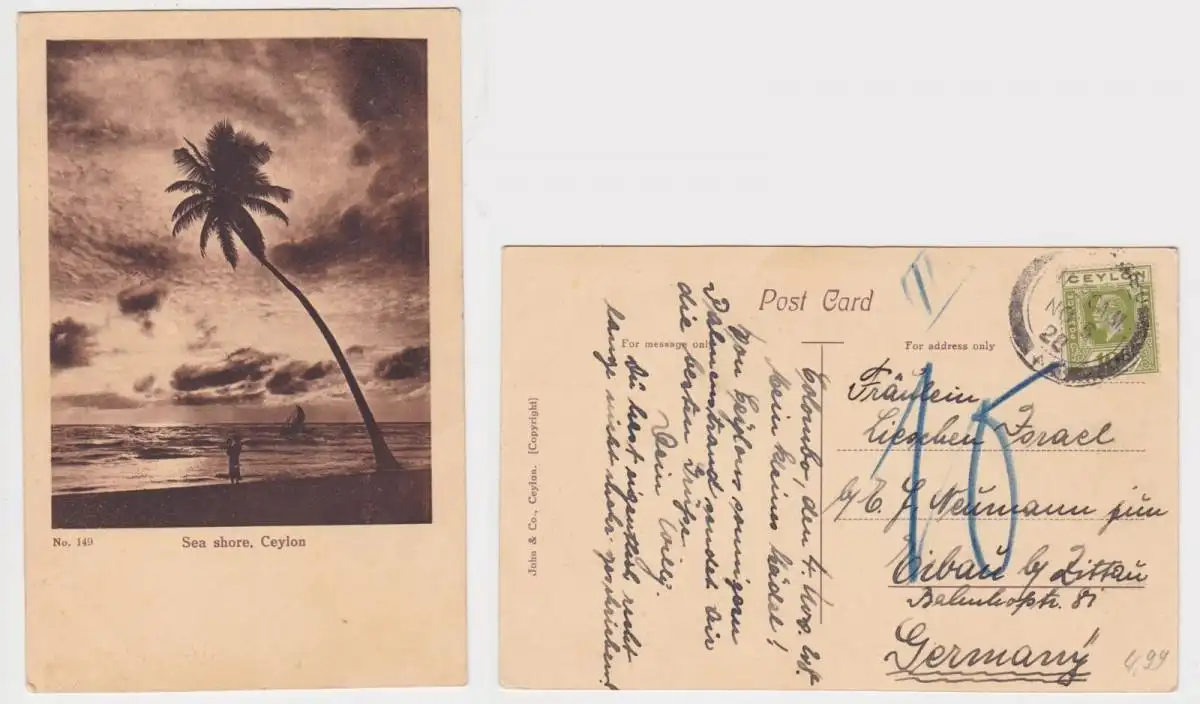 No. 149
Sea shore, Ceylon
Post Card
For message only
For address only
John & Co., Ceylon. [Copyright]
CEYLON
POSTAGE
Colombo, den 4. Nov.
Mein kleines Mädel!
Vom Ceylons sonnigem
Palmenstrand sendet Dir
die besten Grüße
Dein Willy.
Du hast eigentlich recht
lange nicht mehr geschrieben!
Fräulein
Lieschen Israel
b/ E. J. Neumann jun
Eibau b/ Zittau
Bahnhofstr. 81
Germany
15
4,99